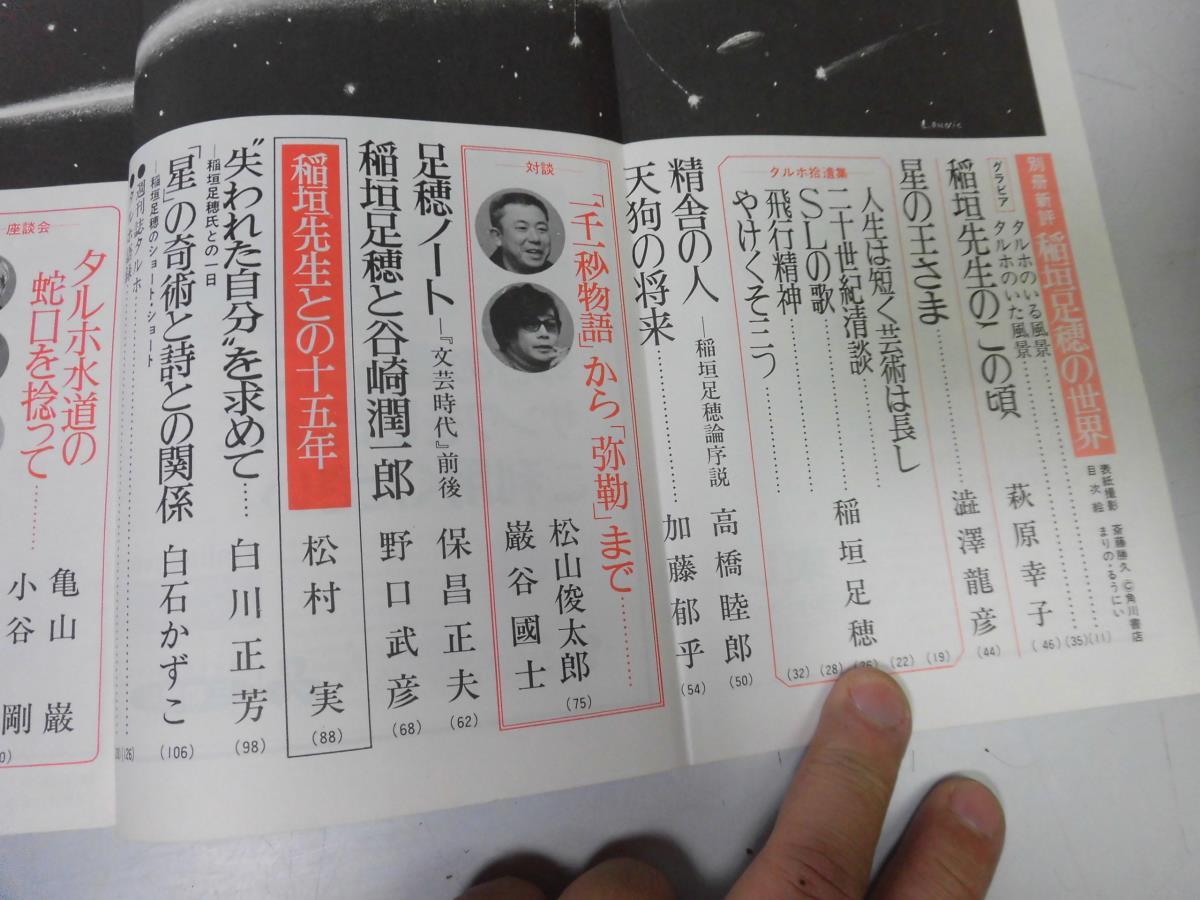 Lounie
別冊新評 稲垣足穂の世界
表紙撮影 斎藤勝久 ©角川書店
目次絵 まりの・るうにい
グラビア
タルホのいる風景 (11)
タルホのいた風景 (35)
稲垣先生のこの頃 萩原幸子 (46)
星の王さま 澁澤龍彦 (44)
タルホ拾遺集
人生は短く芸術は長し (19)
二十世紀清談 (22)
SLの歌 (26)
飛行精神 (28)
やけくそ三つ (32)
稲垣足穂
精舎の人 ―稲垣足穂論序説 高橋睦郎 (50)
天狗の将来 加藤郁乎 (54)
対談
「一千一秒物語」から「弥勒」まで
松山俊太郎
巌谷國士
(75)
足穂ノート ―『文芸時代』前後 保昌正夫 (62)
稲垣足穂と谷崎潤一郎 野口武彦 (68)
稲垣先生との十五年 松村実 (88)
“失われた自分”を求めて 白川正芳 (98)
―稲垣足穂氏との一日
「星」の奇術と詩との関係 白石かずこ (106)
―稲垣足穂のショート・ショート
●週刊誌タルホ (126)
座談会
タルホ水道の
蛇口を捻って
亀山巌
小谷剛